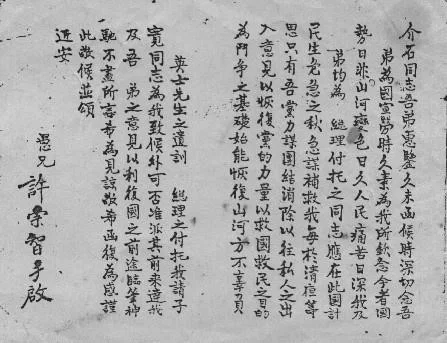 介石同志吾弟惠鑒久未函候時深切念吾
弟為國宣勞時久素為我所欽念今者國
勢日非山河變色日久人民痛苦日深我及
弟均為 總理付托之同志應在此國計
民生危急之秋急謀補救我每於清夜等
思只有吾黨力謀團結消除以往私人之出
入意見以恢復黨的力量以救國救民之目的
為鬥爭之基礎始能恢復山河方不辜負
英士先生之遺訓 總理之付托我請子
寬同志為我致候外可否准派其前來達我
及吾 弟之意見以利復國之前途臨筆神
馳不盡所言希為見諒敬希函復為感謹
此敬候並頌
近安
愚兄 許崇智手啟